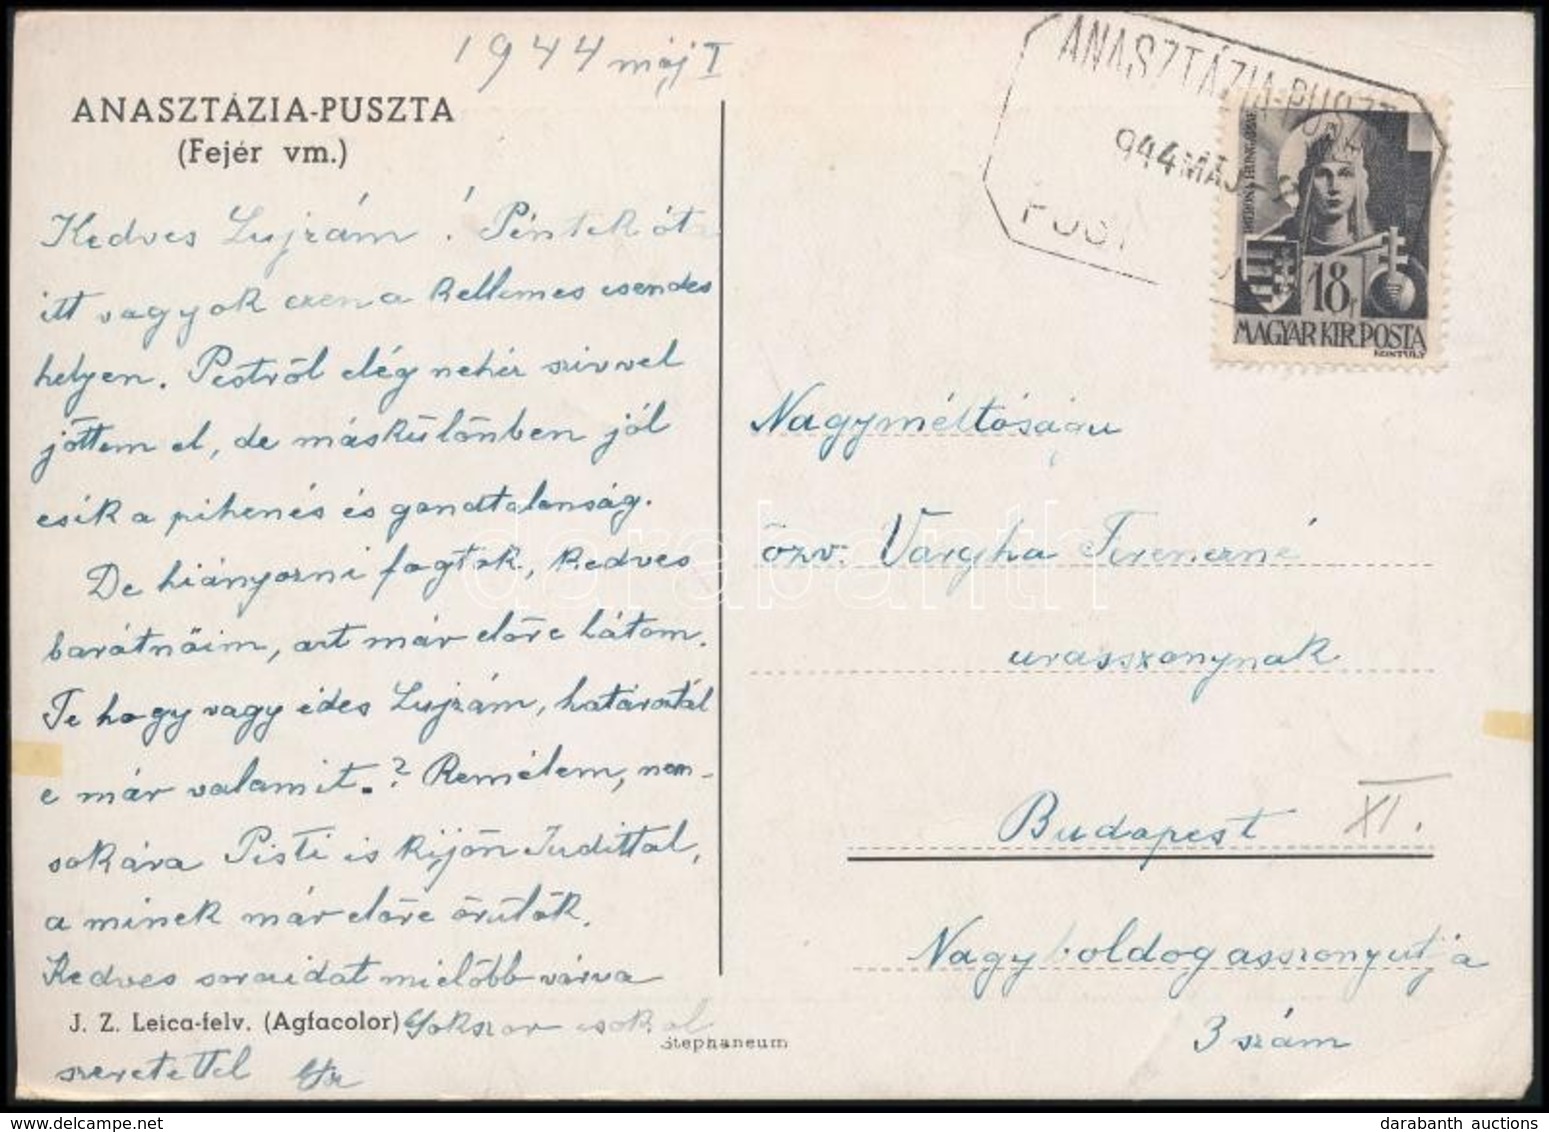 1944 máj 1
ANASZTÁZIA-PUSZTA
(Fejér vm.)
Kedves Lujzám! Péntek óta
itt vagyok ezen a kellemes csendes
helyen. Pestről elég nehéz szivvel
jöttem el, de máskülönben jól
esik a pihenés és gondtalanság.
De hiányozni fogtok, kedves
barátnőim, azt már előre látom.
Te hogy vagy édes Lujzám, határoztál
e már valamit.? Remélem, nem-
sokára Pisti is kijön Judittal,
a minek már előre örülök.
Kedves soraidat mielőbb várva
J. Z. Leica-felv. (Agfacolor) sokszor csokol
szeretettel
Stephaneum
ANASZTÁZIA-PUSZT
944 MÁJ
POST
PATRONA HUNGARIAE
18f
MAGYAR KIR. POSTA
KONTULY
Nagyméltóságu
özv. Vargha Ferencné
urasszonynak
Budapest XI.
Nagyboldogasszonyutja
3 szám
darabanth
darabanth auctions